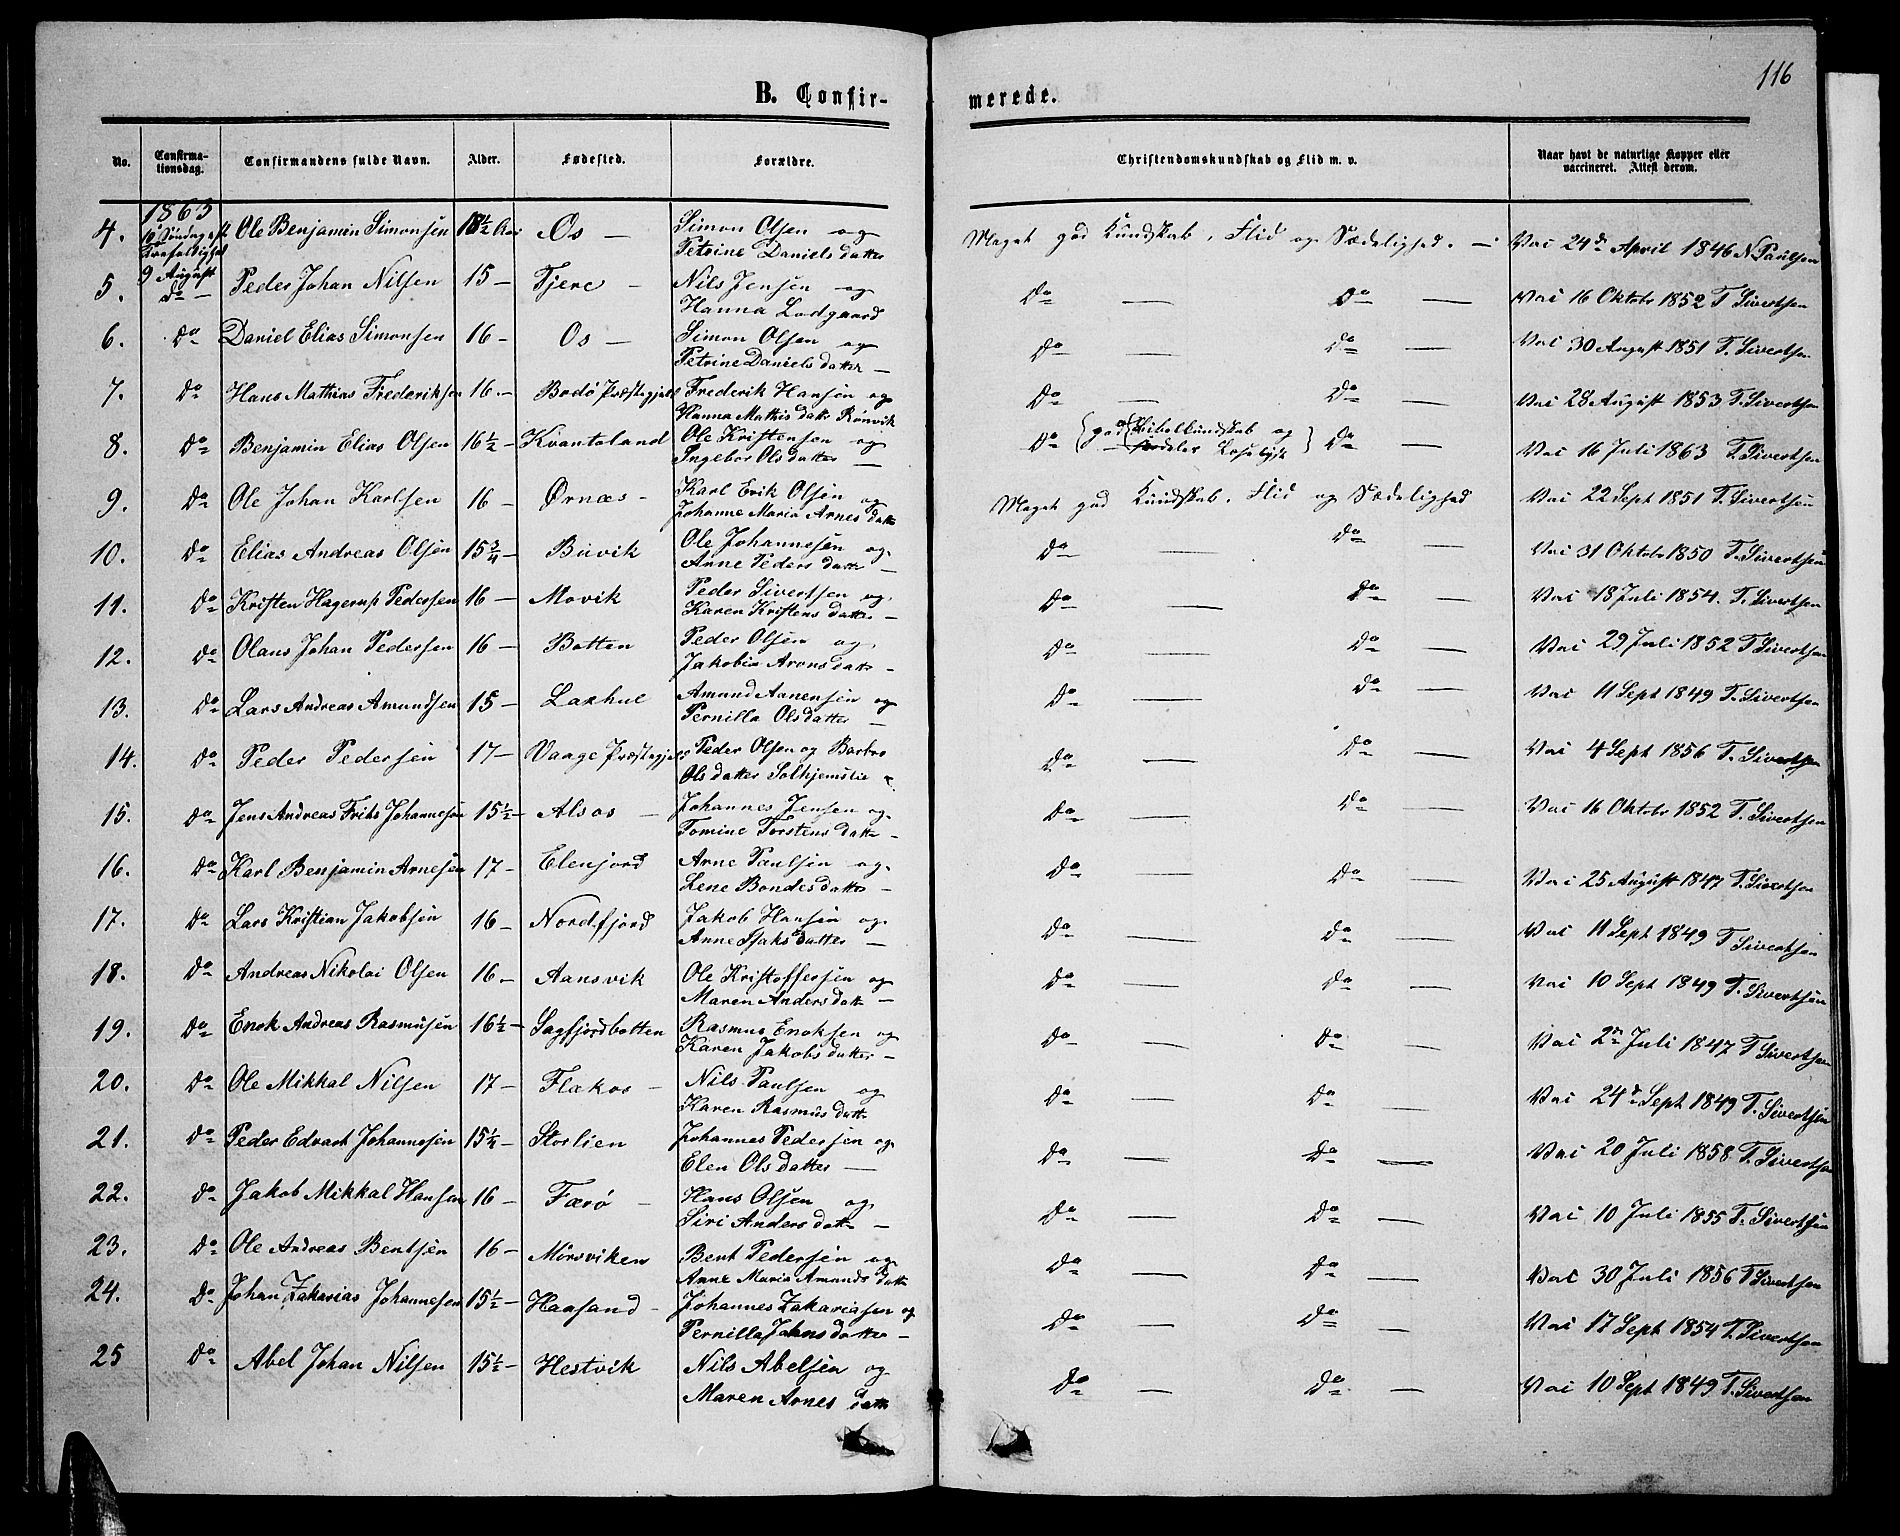 116
B. Confirmerede.
No. Confirmationsdag. Confirmandens fulde Navn. Alder. Fødested. Forældre. Christendomskundskab og Flid m. v. Naar havt de naturlige Kopper eller vaccineret. Attest derom.
1863
4. 10 Søndag eft Trefoldighed 9 August Ole Benjamin Simonsen 18½ Aar Os — Simon Olsen og Petrine Daniels datter Meget god Kundskab, Flid og Sædelighed. — Vac 24de April 1846 N Paulsen
5. do — Peder Johan Nilsen 15 — Fjere — Nils Jensen og Hanna Lodgaard Do — Do — Vac 16 Oktobr 1852 T. Sivertsen
6. Do Daniel Elias Simonsen 16 — Os — Simon Olsen og Petrine Daniels datter — Do — Do — Vac 30 August 1851 T. Sivertsen
7. Do Hans Mathias Frederiksen 16 — Bodø Præstegjeld Frederik Hansen og Hanna Mathis datr Rønvik Do — Do — Vac 28 August 1853 T. Sivertsen
8. Do Benjamin Elias Olsen 16½ — Kvantoland Ole Kristensen og Ingebor Ols datter — Do {god Bibelkundskab og} Do — Vac 16 Juli 1863 T. Sivertsen
9. Do Ole Johan Karlsen 16 — Ørnæs — Karl Erik Olsen og Johanne Maria Arnes datr Meget god Kundskab, Flid og Sædelighed Vac 22 Sept 1851 T. Sivertsen
10. Do Elias Andreas Olsen 15¾ — Buvik Ole Johannesen og Anne Peders datr — Do — Do — Vac 31 Oktobr 1850 T. Sivertsen
11. Do Kristen Hagerup Pedersen 16 — Movik Peder Sivertsen og Karen Kristens datr — Do — Do — Vac 18 Juli 1854. T. Sivertsen
12. Do Olans Johan Pedersen 16 — Botten Peder Olsen og Jakobia Arons datr — Do — Do — Vac 29 Juli 1852 T Sivertsen
13. Do Lars Andreas Amundsen 15 — Laxhul Amund Aanensen og Pernilla Ols datter — Do — Do — Vac 11 Sept 1849 T. Sivertsen
14. Do Peder Pedersen 17 — Vaage Præstegjeld Peder Olsen og Barbro Ols datter Solhjemslie Do — Do — Vac 4 Sept 1856 T. Sivertsen
15. Do Jens Andreas Friks Johannesen 15½ — Alsos — Johannes Jensen og Tomine Torstens datr — Do — Do — Vac 16 Oktobr 1852 T. Sivertsen
16. Do Karl Benjamin Arnesen 17 — Elenjord Arne Paulsen og Lene Bondes datter — Do — Do — Vac 25 August 1847 T. Sivertsen
17. Do Lars Kristian Jakobsen 16 — Nordfjord Jakob Hansen og Anne Isaks datter — Do — Do — Vac 11 Sept 1849 T Sivertsen
18. Do Andreas Nikolai Olsen 16 — Aansvik Ole Kristoffersen og Maren Anders datr — Do — Do — Vac 10 Sept 1849 T. Sivertsen
19. Do Enok Andreas Rasmusen 16½ — Sagfjordbotten Rasmus Enoksen og Karen Jakobs datter — Do — Do — Vac 2den Juli 1847 T Sivertsen
20. Do Ole Mikkal Nilsen 17 — Flækos — Nils Paulsen og Karen Rasmus datr Do — Do — Vac 24de Sept 1849 T. Sivertsen
21. Do Peder Edvart Johannesen 15½ — Storlien Johannes Pedersen og Elen Ols datter — Do — Do — Vac 20 Juli 1858 T. Sivertsen
22. Do Jakob Mikkal Hansen 16 — Færø — Hans Olsen og Siri Anders datr — Do — Do — Vac 10 Juli 1855 T. Sivertsen
23. Do Ole Andreas Bentsen 16 — Mørsviken Bent Pedersen og Anne Maria Amunds datr Do — Do — Vac 30 Juli 1856 T Sivertsen
24. Do Johan Zakarias Johannesen 15½ — Haasand — Johannes Zakariasen og Pernilla Johns datter — Do — Do — Vac 17 Sept 1854 T. Sivertsen
25 Do Abel Johan Nilsen 15½ — Hestvik Nils Abelsen og Maren Arnes datr Do — Do — Vac 10 Sept 1849 T. Sivertsen